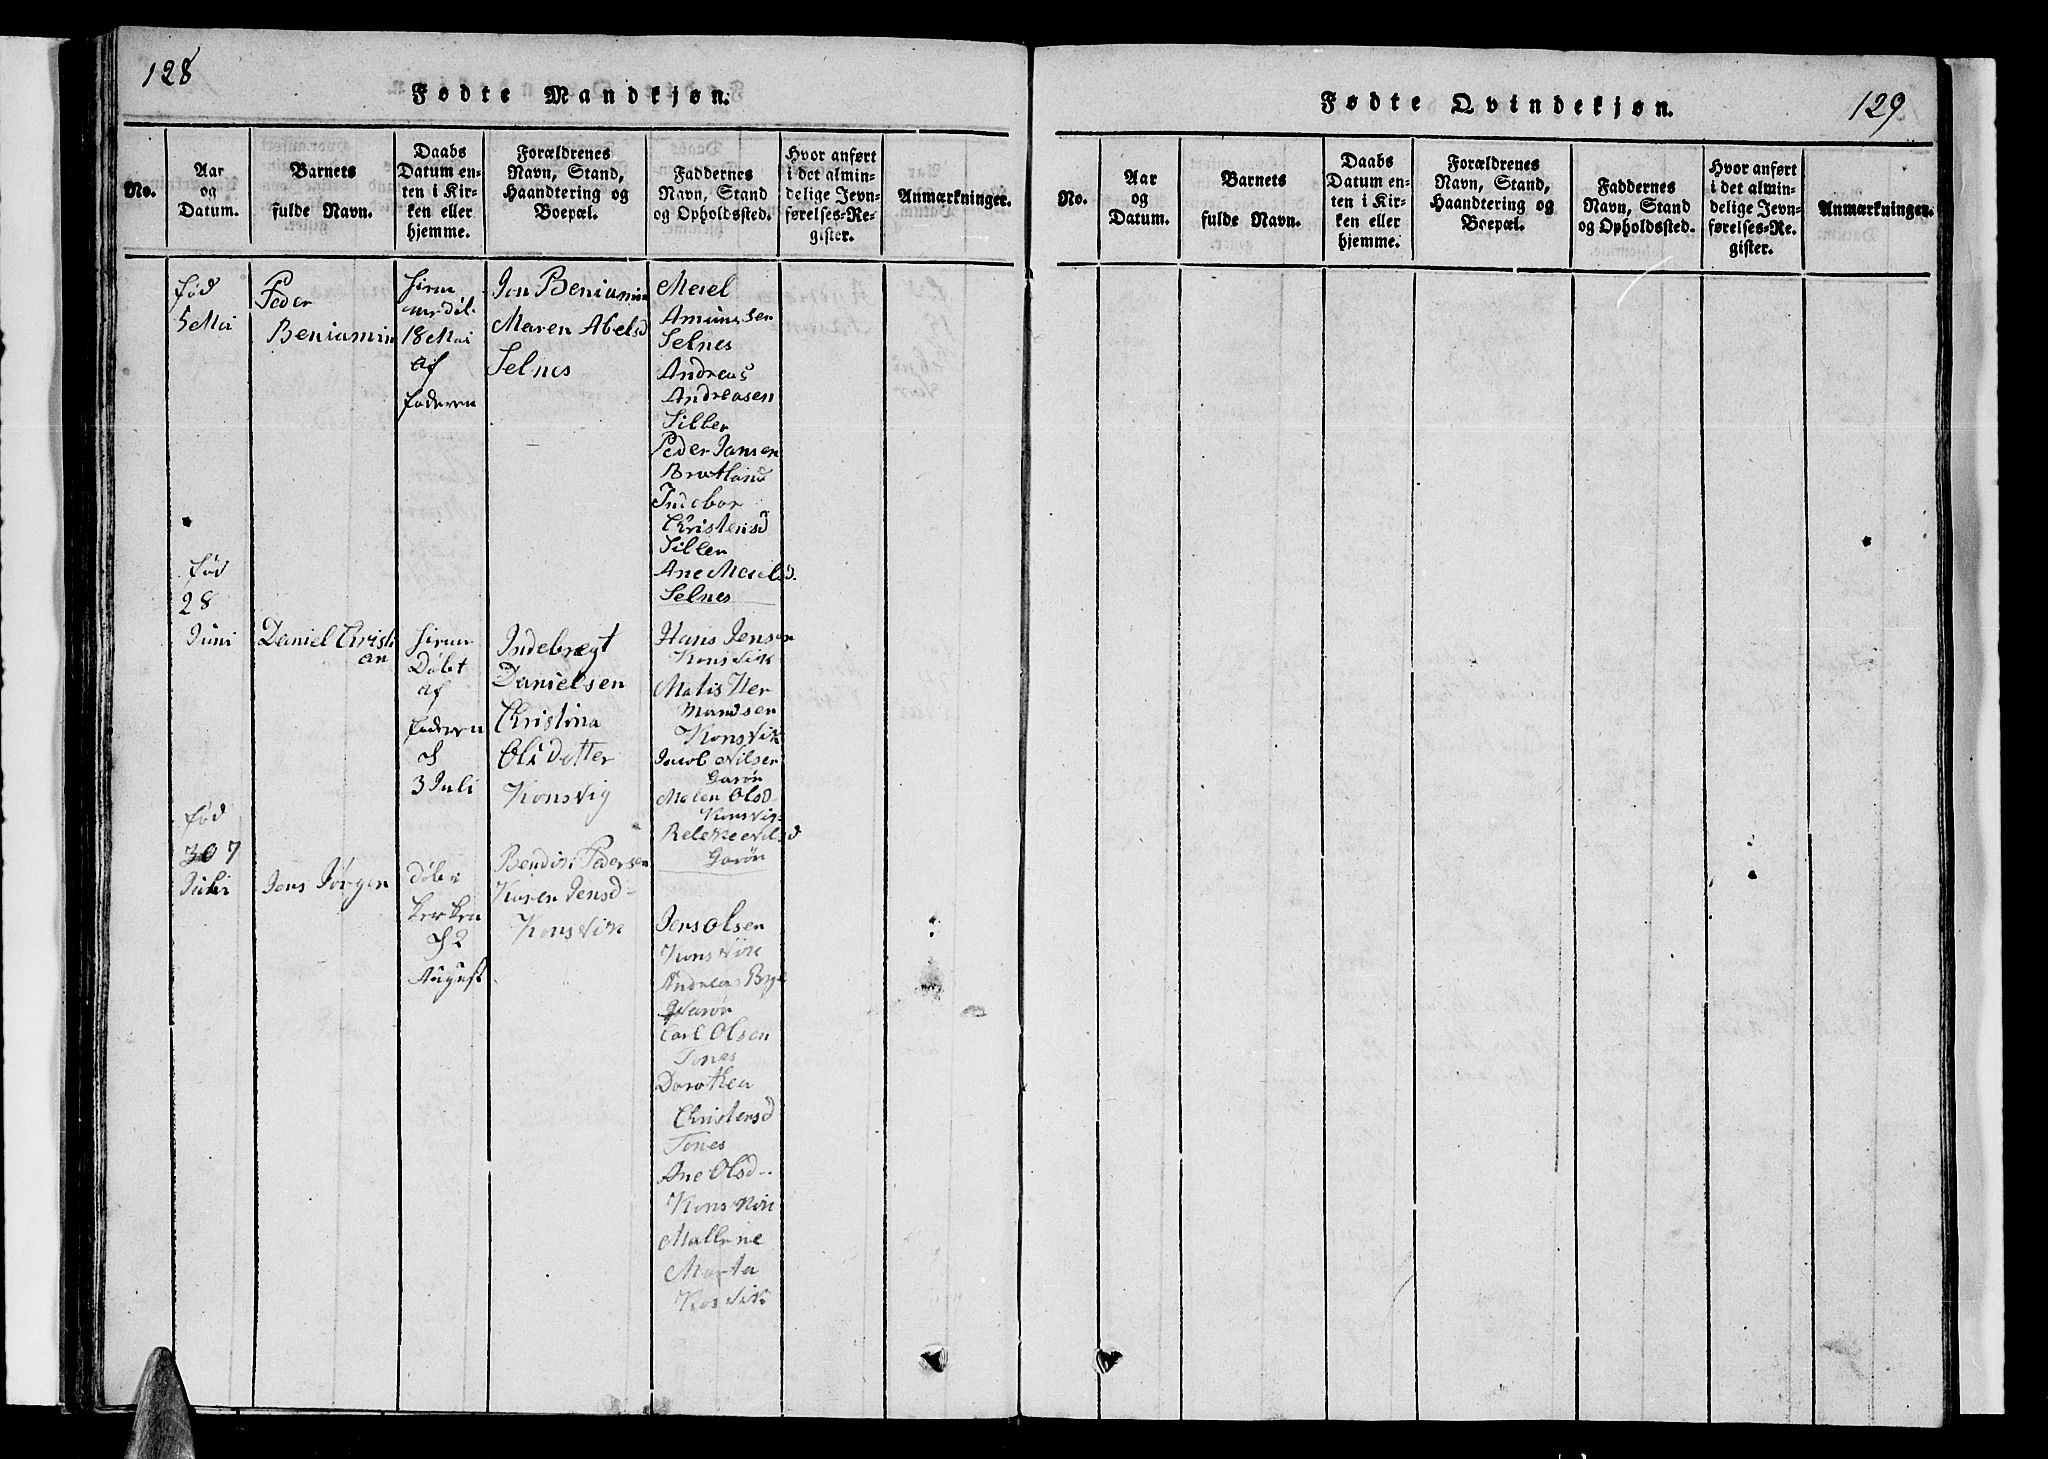 128
Fødte Mandkjøn.
No.
Aar
og
Datum.
Barnets
fulde Navn.
Daabs
Datum en-
ten i Kir-
ken eller
hjemme.
Forældrenes
Navn, Stand,
Haandtering og
Boepæl.
Faddernes
Navn, Stand
og Opholdssted.
Hvor anført
i det almin-
delige Jevn-
førelses-Re-
gister.
Anmærkninger.
fød
5 Mai
Peder
Beniamin
18 Mai
af
faderen
Jon Beniamin
Maren Abelsd
Selnes
Meiel
Amunsen
Selnes
Andreas
Andreasen
Siller
Peder Jansen
Bratland
Indebor
Christensd
Siller
Ane Meielsd.
Selnes
fød
28
Juni
Daniel Christi
an
Døbt
af
faderen
3 Juli
Indebregt
Danielsen
Christina
Olsdotter
Konsvig
Hans Jensen
Konsvik
Matis Her
mandsen
Konsvik
Jacob Nilsen
Garøn
Malen Olsd
Konsvig
Nilsd
Garøn
fød
30 7
Juli
Jens Jørgen
Døbt
kerken
2
August
Bendix Pedersen
Karen Jensd-
Konsvik
Jens Olsen
Konsvik
Andreas
Carl Olsen
Tones
Dorothea
Christensd
Tones
Ane Olsd-
Konsvik
Mallene
Marta
Konsvik
129
Fødte Qvindekjøn.
No.
Aar
og
Datum.
Barnets
fulde Navn.
Daabs
Datum en-
ten i Kir-
ken eller
hjemme.
Forældrenes
Navn, Stand,
Haandtering og
Boepæl.
Faddernes
Navn, Stand
og Opholdssted.
Hvor anført
i det almin-
delige Jevn-
førelses-Re-
gister.
Anmærkninger.